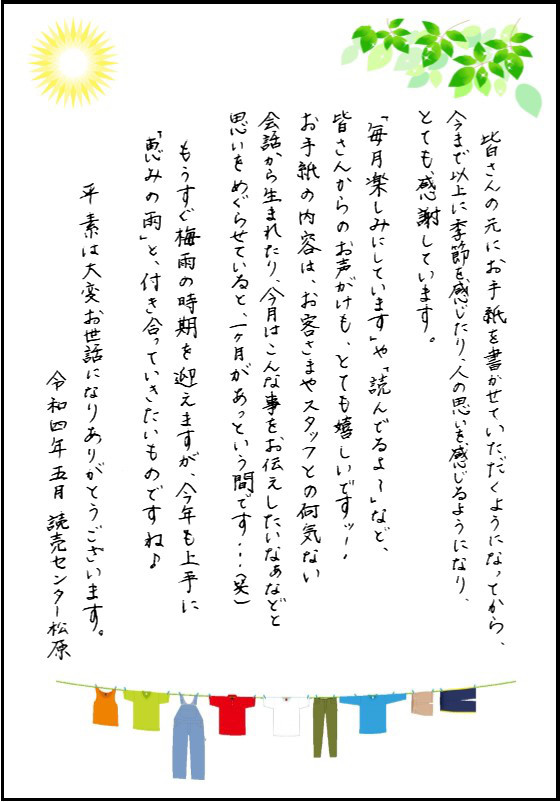 皆さんの元にお手紙を書かせていただくようになってから、
今まで以上に季節を感じたり、人の思いを感じるようになり、
とても感謝しています。
「毎月楽しみにしています」や「読んでるよ〜」など、
皆さんからのお声がけも、とても嬉しいですッ!
お手紙の内容は、お客さまやスタッフとの何気ない
会話から生まれたり、今月はこんな事をお伝えしたいなぁなどと
思いをめぐらせていると、一ヶ月があっという間です・・・(笑)
もうすぐ梅雨の時期を迎えますが、今年も上手に
「恵みの雨」と、付き合っていきたいものですね♪
平素は大変お世話になりありがとうございます。
令和四年五月 読売センター松原